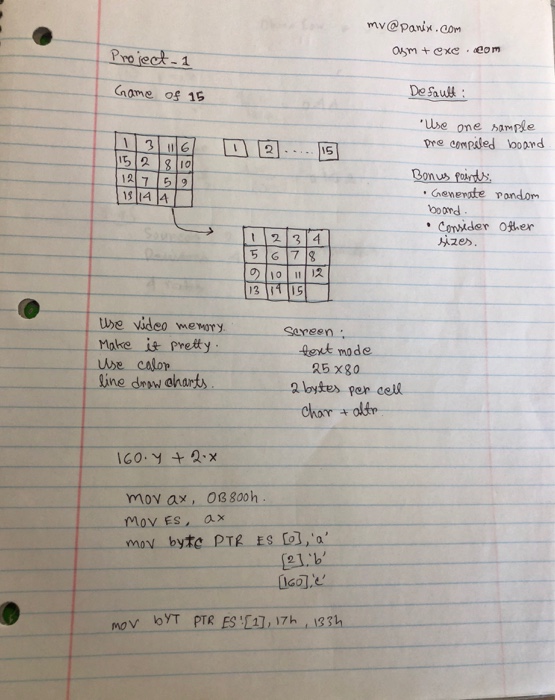 mv@panix.com
asm + exe . com
Project-1
Game of 15
Default:
1 3 11 6
15 2 8 10
12 7 5 9
13 14 4
1 2 ..... 15
• Use one sample
pre compiled board
Bonus points:
• Generate random
board.
• Consider other
sizes.
1 2 3 4
5 6 7 8
9 10 11 12
13 14 15
Use video memory.
Make it pretty.
Use color
line draw charts.
Screen:
text mode
25 x 80
2 bytes per cell
char + attr
160.y + 2.x
mov ax, 0B800h.
mov ES, ax
mov byte PTR ES [0],'a'
[2],'b'
[160],'c'
mov byT PTR ES:[1], 17h, 133h